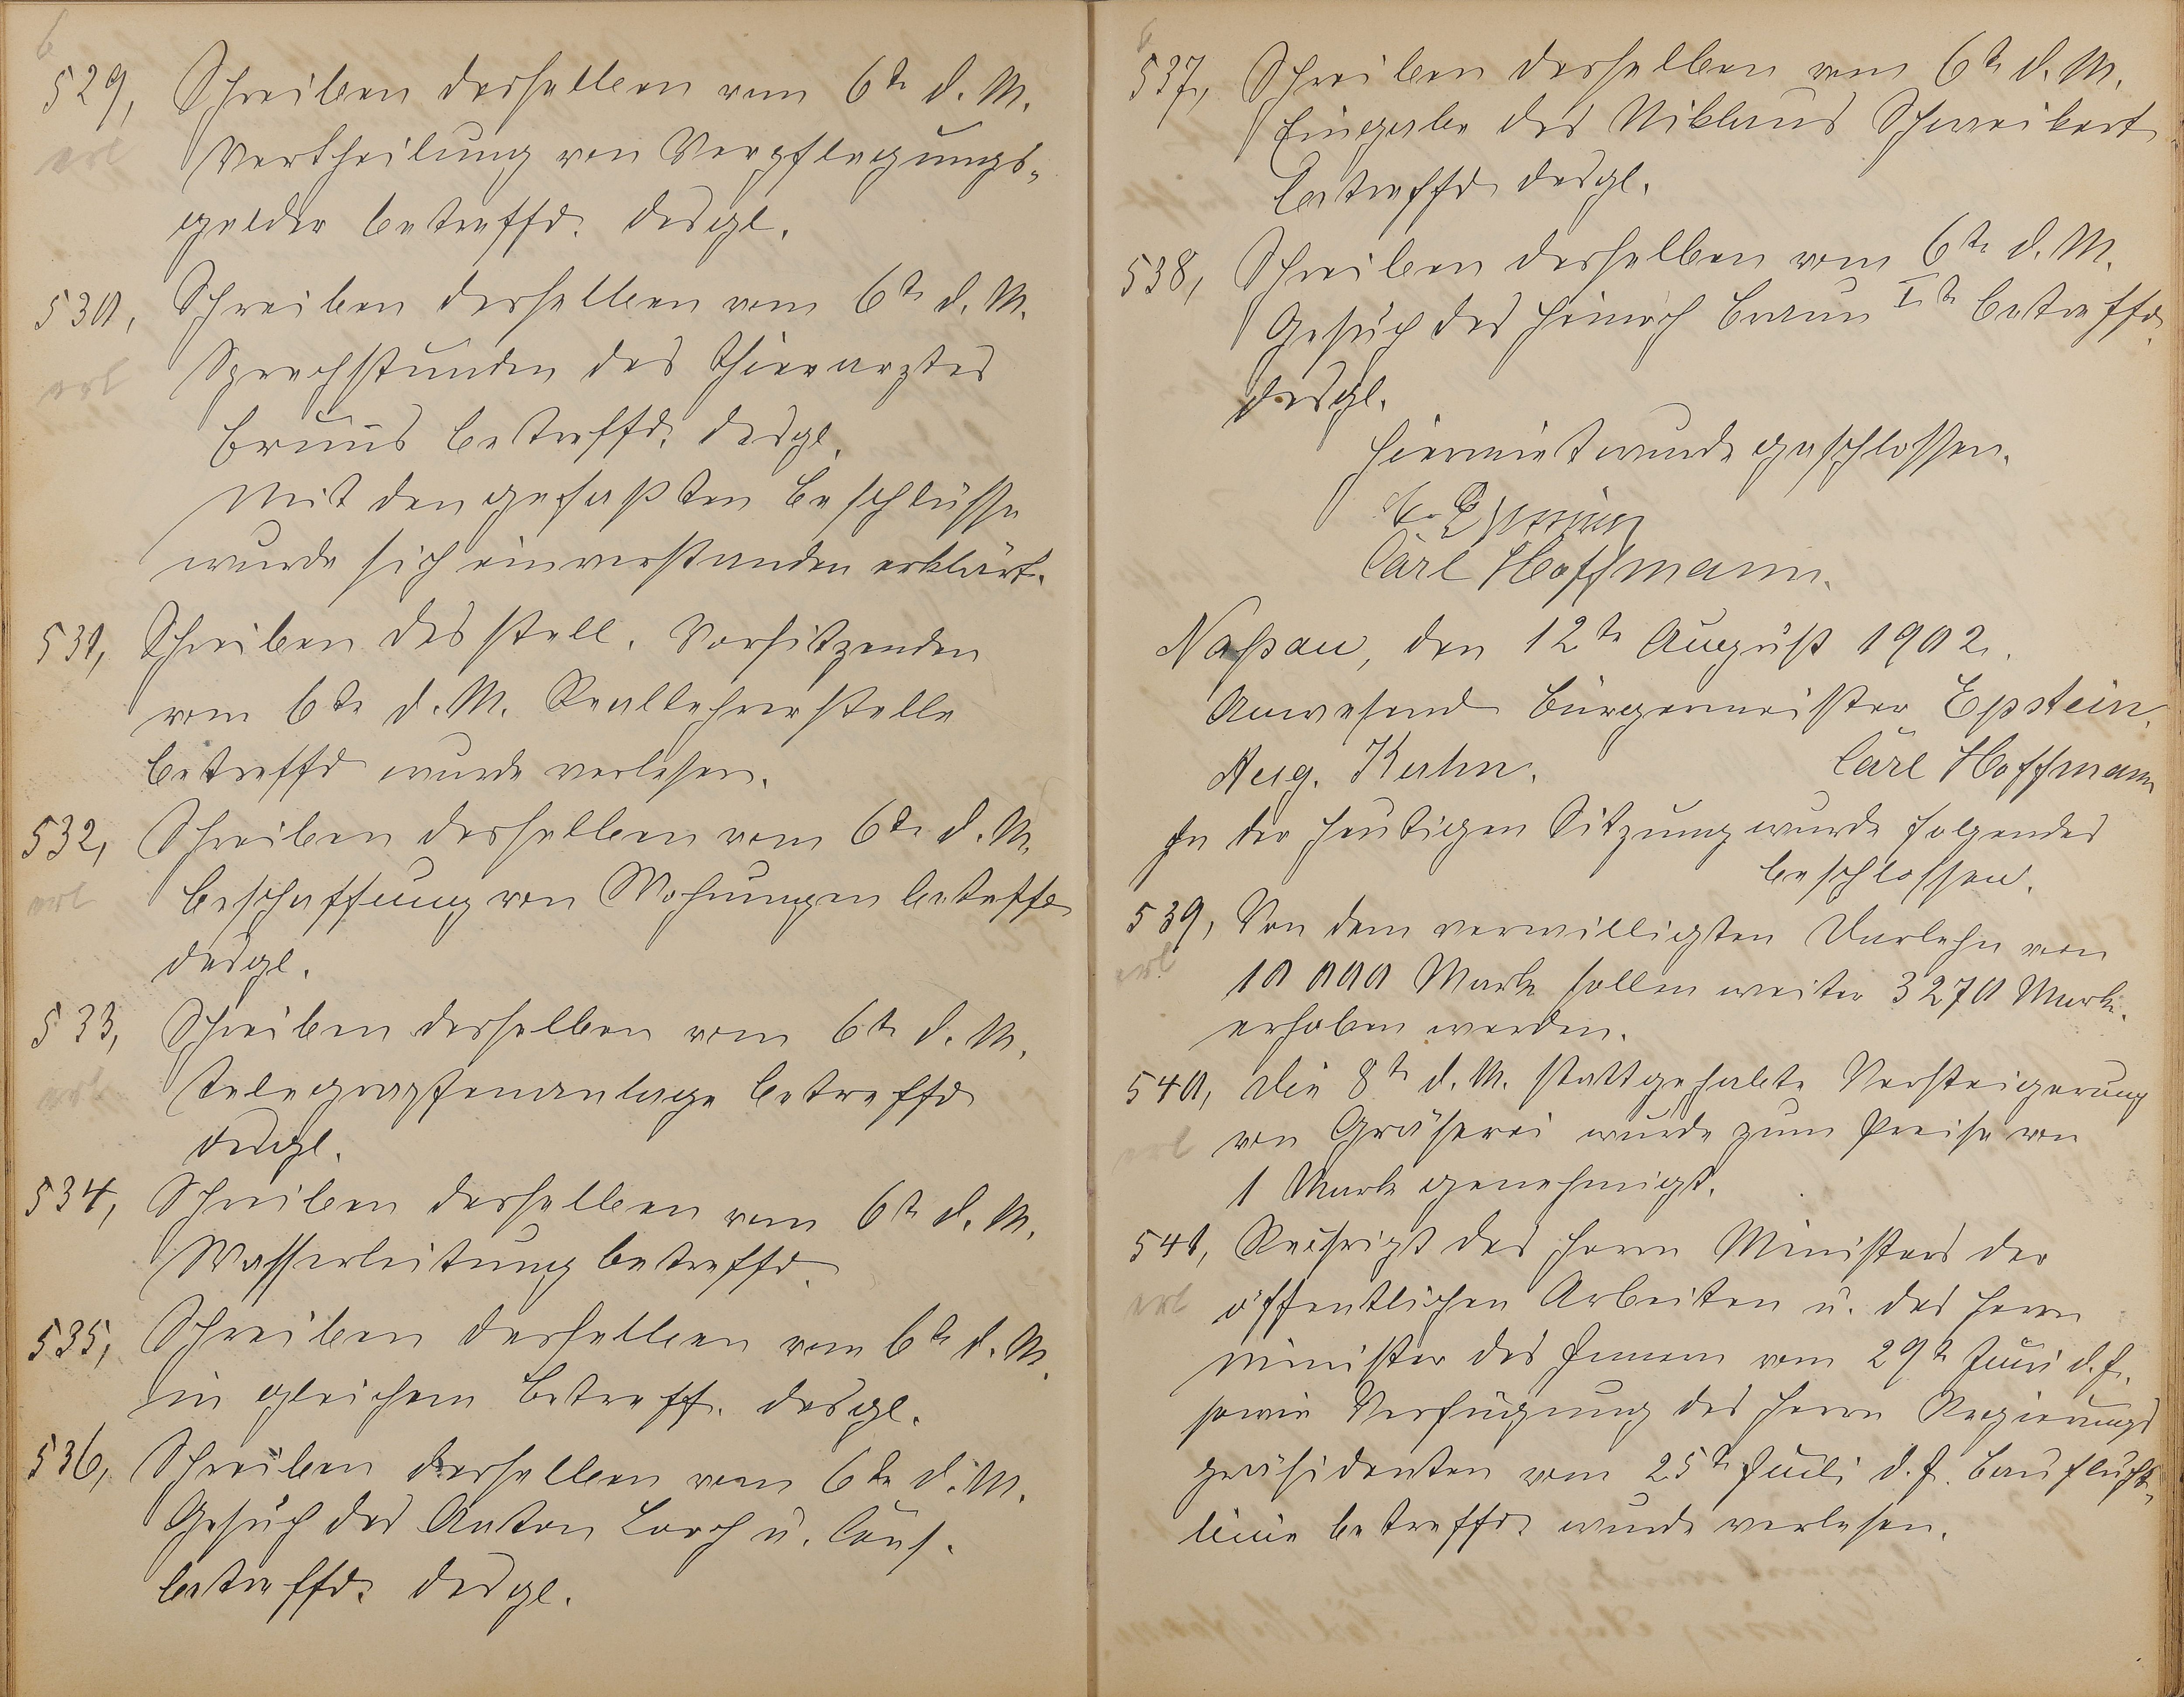 6
529, Schreiben desselben vom 6te d. M.
erl Vertheilung von Verpflegungs-
gelder betreffd. desgl.
530, Schreiben desselben vom 6te d. M.
erl Sprechstunden des Thierarztes
Bruns betreffd. desgl.
Mit den gefaßten Beschlüsse
wurde sich einverstanden erklärt.
531, Schreiben des stell. Vorsitzenden
vom 6te d. M. Reallehrerstelle
betreffd wurde verlesen.
532, Schreiben desselben vom 6te d. M.
erl Beschaffung von Wohnungen betreffd
desgl.
533, Schreiben desselben vom 6te d. M.
erl Telegrapfenanlage betreffd
desgl.
534, Schreiben desselben vom 6te d. M.
Wasserleitung betreffd.
535, Schreiben desselben vom 6te d. M.
in gleichem Betreff. desgl.
536, Schreiben desselben vom 6te d. M.
Gesuch des Anton Lorch u. Cons.
betreffd. desgl.
6
537, Schreiben desselben vom 6te d. M.
Eingabe des Niklaus Schweikert
betreffd desgl.
538, Schreiben desselben vom 6te d. M.
Gesuch des Heinrich Braun Ite betreffd
desgl.
Hiermit wurde geschlossen.
Carl Hoffmann.
Naßau, den 12te August 1902.
Anwesend Bürgermeister Epstein.
Aug. Kuhn. Carl Hoffmann
In der heutigen Sitzung wurde folgendes
beschlossen.
539, Von dem verwilligten Darlehn von
erl 10 000 Mark sollen weiter 3270 Mark
erhoben werden.
540, Die 8te d. M. stattgehabte Versteigerung
erl von Gräserei wurde zum Preise von
1 Mark genehmigt.
541, Rescript des Herrn Ministers der
erl öffentlichen Arbeiten u. des Herrn
Minister des Innern vom 29te Juni d. J.
sowie Verfügung des Herrn Regierungs
präsidenten vom 25te Juli d. J. Bauflucht-
linie betreffd. wurde verlesen.